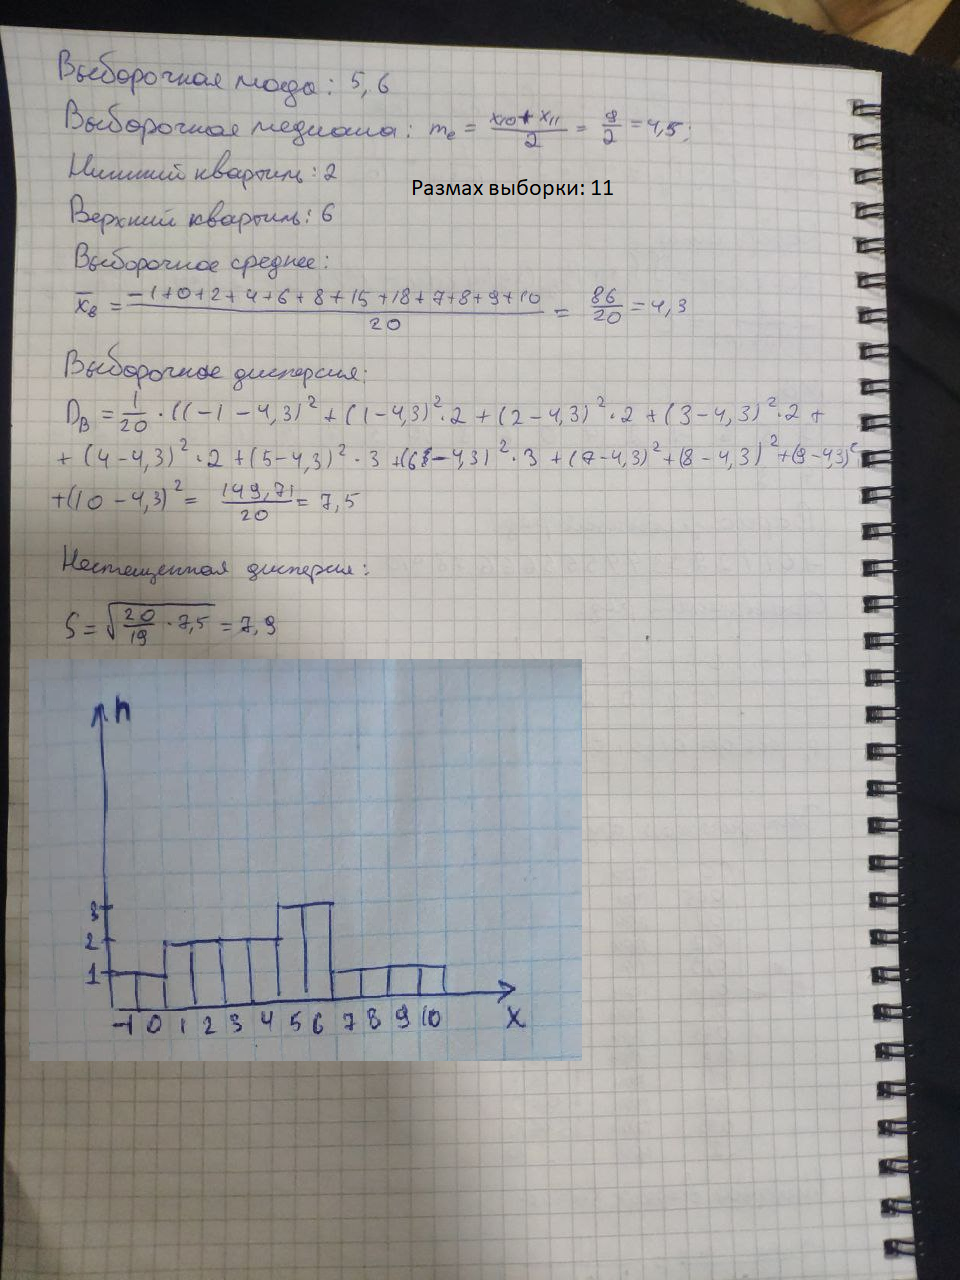 Выборочная мода: 5, 6
Выборочная медиана: mₑ = (x₁₀ + x₁₁)/2 = 9/2 = 4,5;
Нижний квартиль: 2
Размах выборки: 11
Верхний квартиль: 6
Выборочное среднее:
x̄в = (-1+0+2+4+6+8+15+18+7+8+9+10)/20 = 86/20 = 4,3
Выборочное дисперсия:
Dв = 1/20 · ((-1-4,3)² + (1-4,3)²·2 + (2-4,3)²·2 + (3-4,3)²·2 +
+ (4-4,3)²·2 + (5-4,3)²·3 + (6-4,3)²·3 + (7-4,3)² + (8-4,3)² + (9-4,3)²
+(10-4,3)² = 149,71/20 = 7,5
Несмещенная дисперсия:
S = √(20/19 · 7,5) = 7,9
n
3
2
1
-1 0 1 2 3 4 5 6 7 8 9 10 x